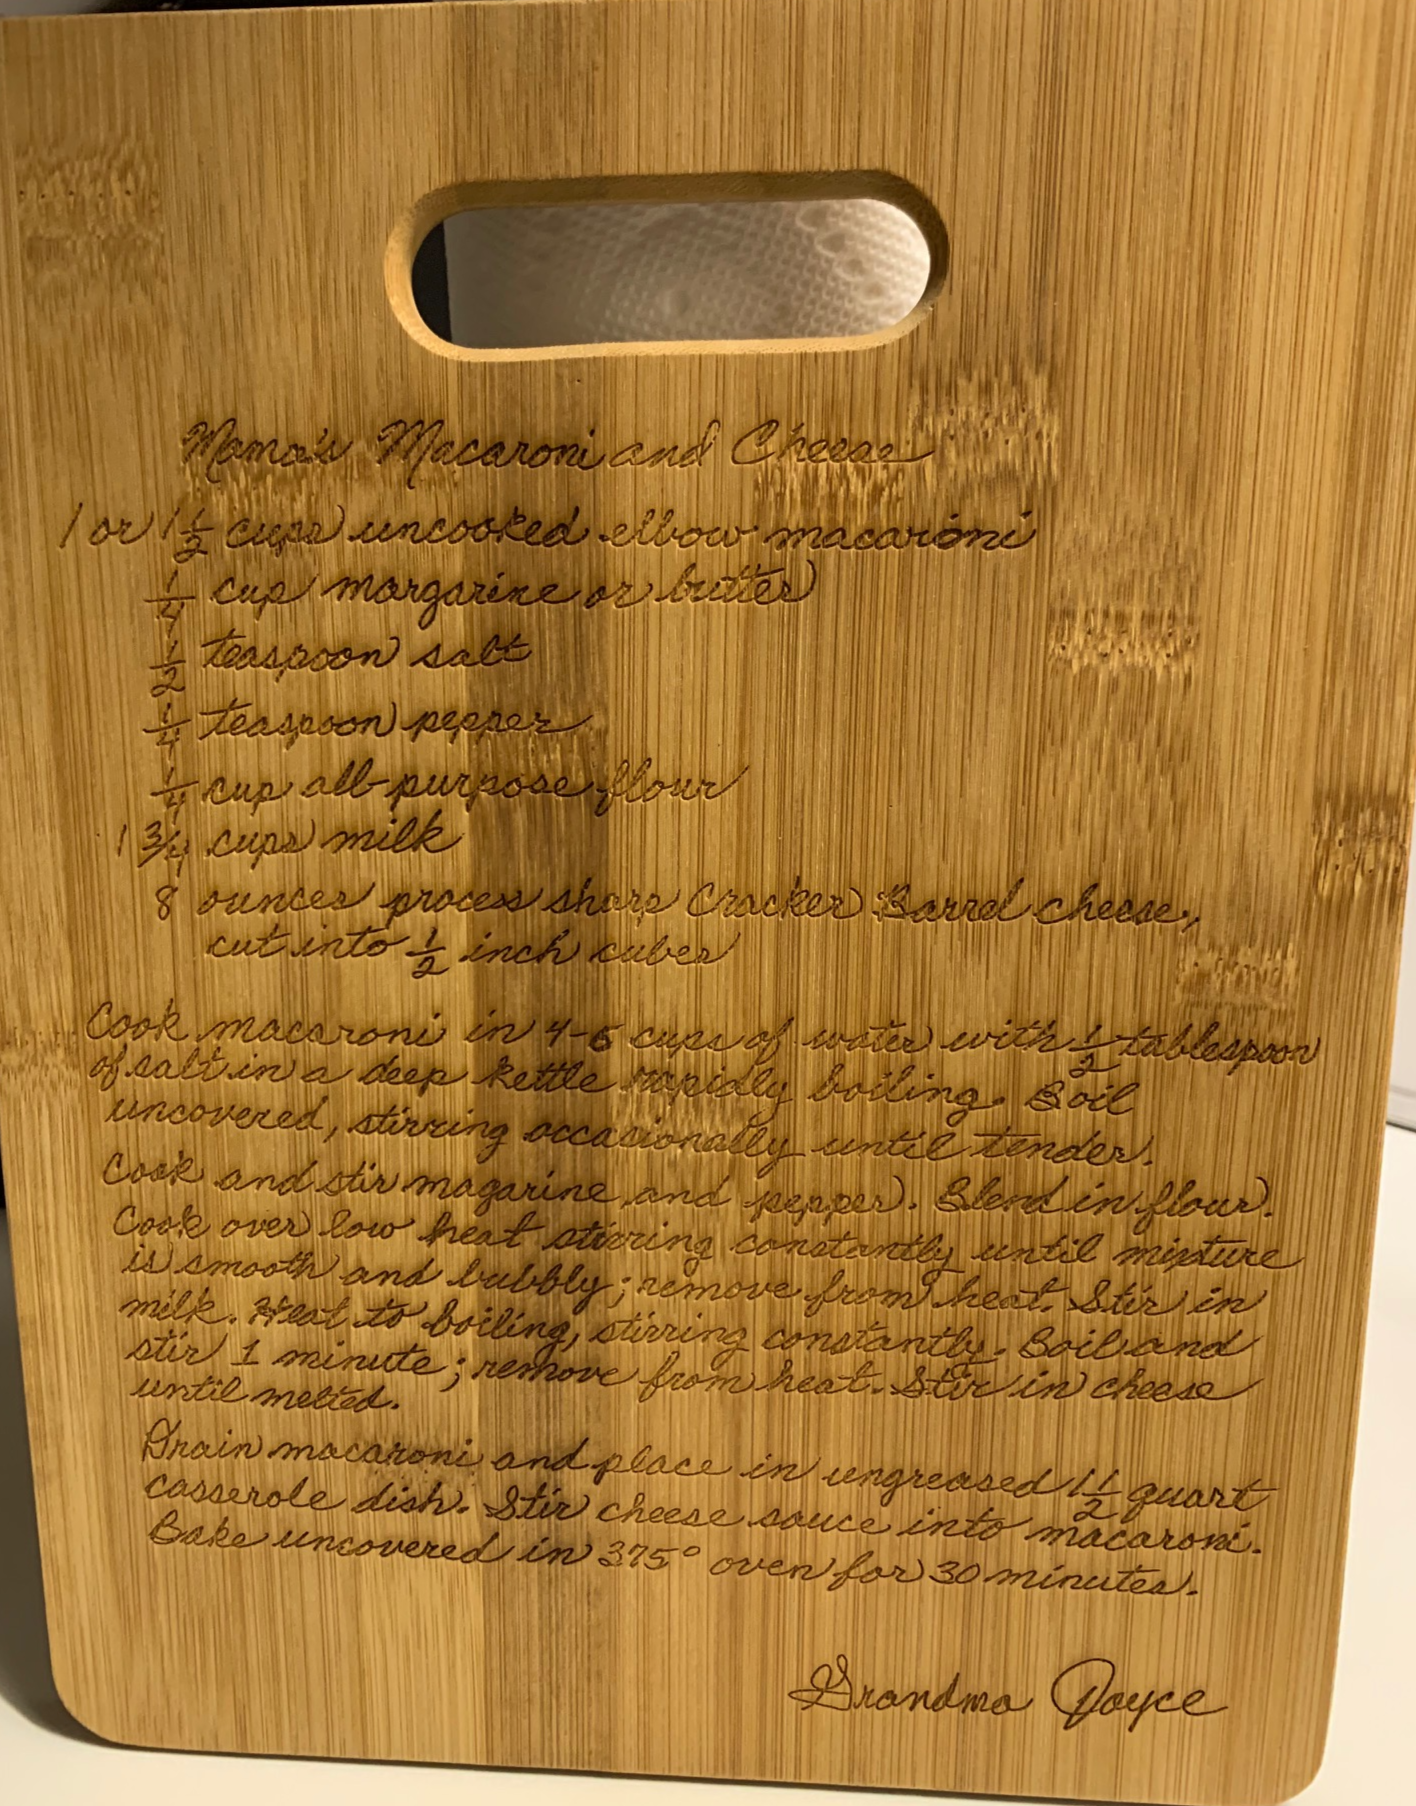 Mama's Macaroni and Cheese
1 or 1 1/2 cups uncooked elbow macaroni
1/4 cup margarine or butter
1/2 teaspoon salt
1/4 teaspoon pepper
1/4 cup all-purpose flour
1 3/4 cups milk
8 ounces process sharp Cracker Barrel cheese,
cut into 1/2 inch cubes
Cook macaroni in 4-6 cups of water with 1/2 tablespoon
of salt in a deep kettle rapidly boiling. Boil
uncovered, stirring occasionally until tender.
Cook and stir magarine, and pepper. Blend in flour.
Cook over low heat stirring constantly until mixture
is smooth and bubbly; remove from heat. Stir in
milk. Heat to boiling, stirring constantly. Boil and
stir 1 minute; remove from heat. Stir in cheese
until melted.
Drain macaroni and place in ungreased 1 1/2 quart
casserole dish. Stir cheese sauce into macaroni.
Bake uncovered in 375° oven for 30 minutes.
Grandma Joyce